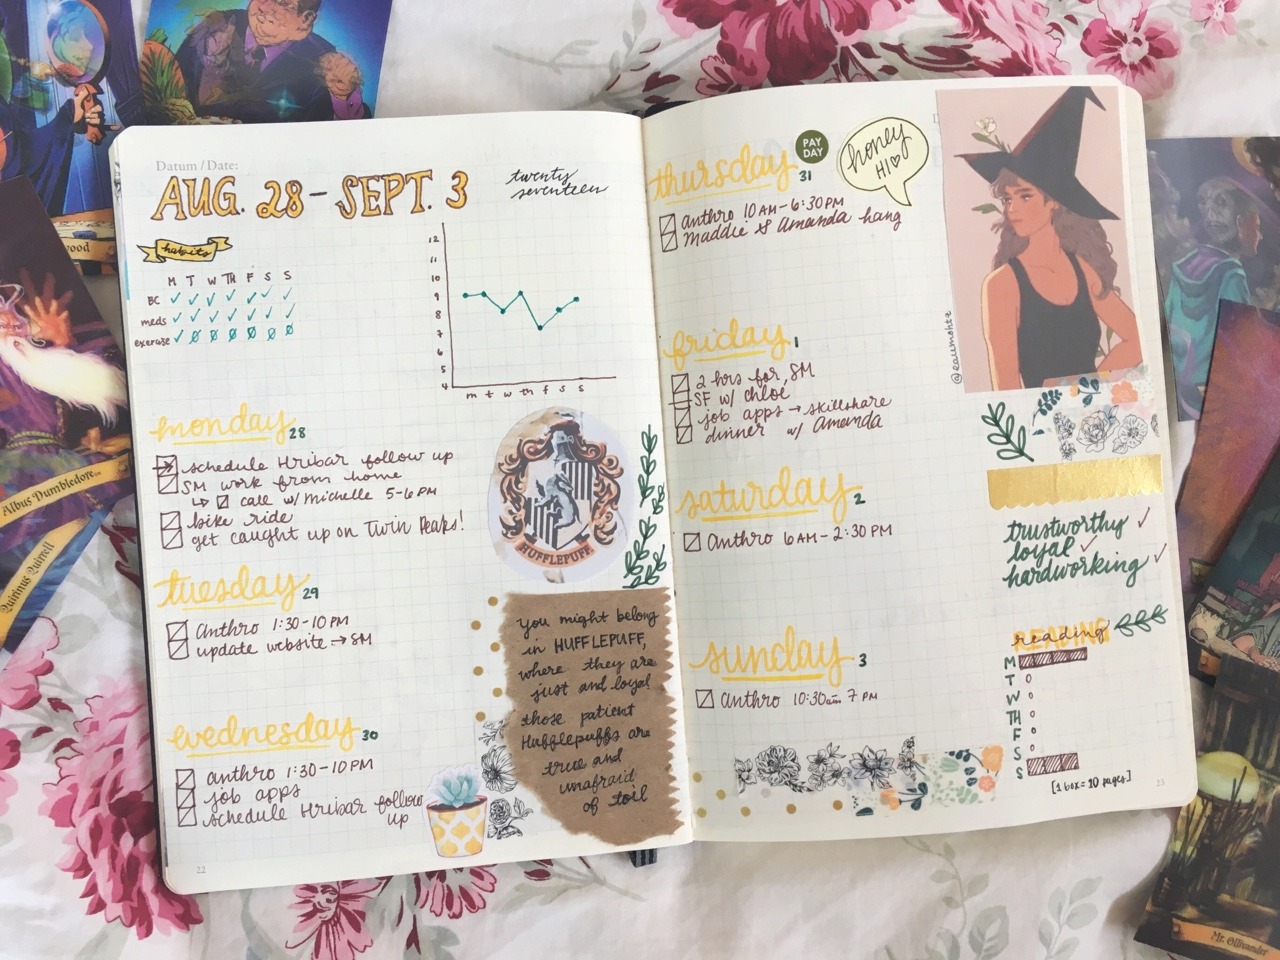 Datum / Date:
AUG. 28 - SEPT. 3
twenty
seventeen
habits
M T W TH F S S
BC
meds
exercise
12
11
10
9
8
7
6
5
4
m t w th f s s
monday 28
schedule Hribar follow up
SM work from home
↳ call w/ Michelle 5-6 PM
bike ride
get caught up on Twin Peaks!
HUFFLEPUFF
tuesday 29
Anthro 1:30-10PM
update website → SM
wednesday 30
anthro 1:30-10PM
job apps
schedule Hribar follow
up
you might belong
in HUFFLEPUFF,
where they are
just and loyal
those patient
Hufflepuffs are
true and
unafraid
of toil
22
thursday 31
PAY
DAY
honey
HI
anthro 10AM-6:30PM
Maddie & Amanda hang
friday 1
2 hrs for SM
SF w/ chloe
job apps → skillshare
dinner w/ Amanda
saturday 2
Anthro 6AM-2:30PM
sunday 3
Anthro 10:30am-7PM
trustworthy ✓
loyal ✓
hardworking ✓
READING
reading
M
T 0
W 0
TH 0
F 0
S 0
S
[1 box = 10 pages]
23
Albus Dumbledore
Quirinus Quirrell
Mr. Ollivander